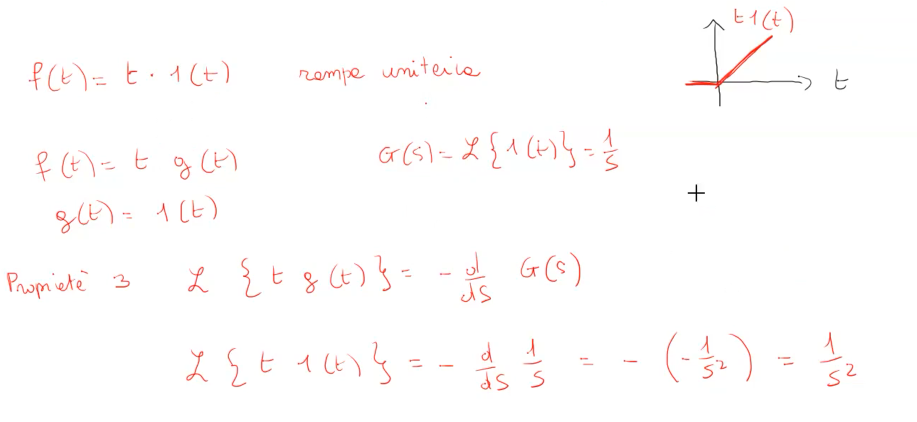 t 1(t)
f(t) = t · 1(t) rampa unitaria
t
f(t) = t g(t) G(s) = ℒ{1(t)} = 1/s
g(t) = 1(t)
Proprietà 3 ℒ {t g(t)} = - d/ds G(s)
ℒ {t 1(t)} = - d/ds 1/s = - (- 1/s²) = 1/s²